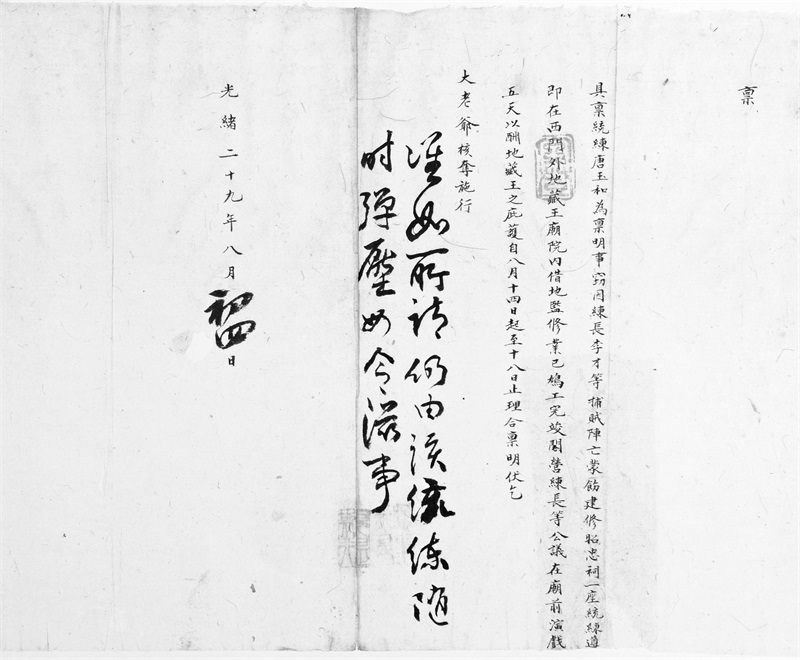 禀
具禀統練唐玉和為禀明事窃因練長李才等捕賊陣亡蒙飭建修昭忠祠一座統練遵
即在西門外地藏王廟院内借地監修業已鳩工完竣闔營練長等公議在廟前演戯
五天以酬地藏王之庇護自八月十四日起至十八日止理合禀明伏乞
大老爺核奪施行
准如所請仍由該統練随
时彈壓毋令滋事
光緒二十九年八月初四日